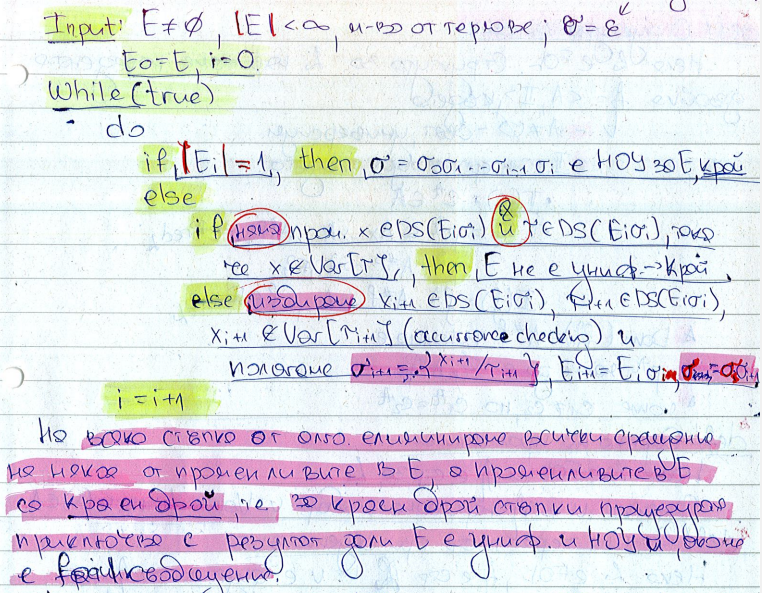 Input: E≠∅, |E|<∞, м-во от термове; σ=ε
E₀=E, i=0.
While (true)
do
if |Eᵢ|=1, then σ=σ₀σ₁...σᵢ₋₁σᵢ е НОУ за E, край
else
if няма пром. x∈DS(Eᵢσᵢ) и τ∈DS(Eᵢσᵢ), така
че x∉Var[τ], then E не е униф.→край
else избираме xᵢ₊₁∈DS(Eᵢσᵢ), τᵢ₊₁∈DS(Eᵢσᵢ),
xᵢ₊₁∉Var[τᵢ₊₁] (occurrence checking) и
полагаме σᵢ₊₁={xᵢ₊₁/τᵢ₊₁}, Eᵢ₊₁=Eᵢσᵢ
i=i+1
На всяка стъпка от алго. елиминираме всички срещания
на някоя от променливите в E, а променливите в E
са краен брой, т.е. за краен брой стъпки процедурата
приключва с резултат дали E е униф. и НОУ
е